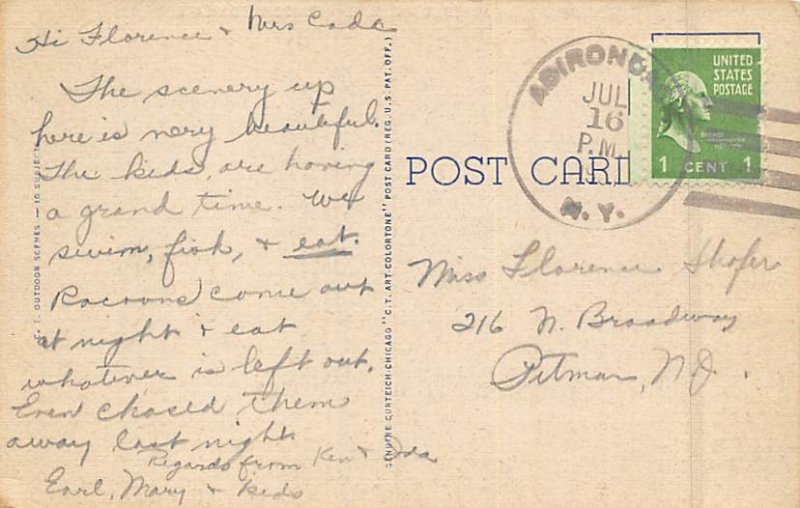 Hi Florence & Mrs Cade
The scenery up
here is very beautiful.
The kids are having
a grand time. We
swim, fish, & eat.
Racoons come out
at night & eat
whatever is left out.
Even chased them
away last night
Regards from Ken & Ida
Earl, Mary & kids
OUTDOOR SCENES — 10 SUBJECTS
GENUINE CURTEICH-CHICAGO "C.T. ART-COLORTONE" POST CARD (REG. U.S. PAT. OFF.)
POST CARD
ADIRONDA
JUL
16
P.M.
N.Y.
UNITED
STATES
POSTAGE
1 CENT 1
Miss Florence Shofer
216 N. Broadway
Pitman, N.J.